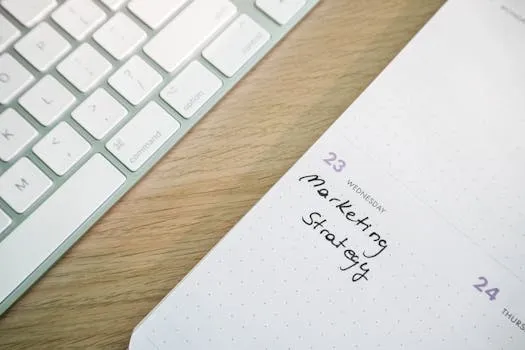 O
P
{
[
}
]
return
K
L
:
;
"
'
shift
M
<
,
>
.
?
/
⌘
command
option
23
WEDNESDAY
Marketing
Strategy
24
THURS